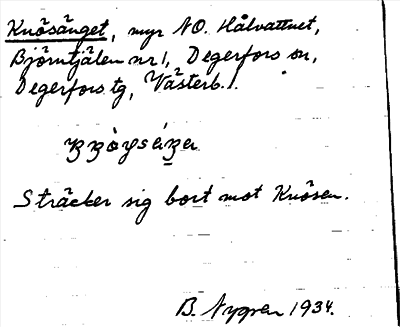 Knösänget, myr NO. Hålvattnet,
Björntjälen nr 1, Degerfors sn,
Degerfors tg, Västerb. l.
Sträcker sig bort mot Knösen.
B. Nygren 1934.